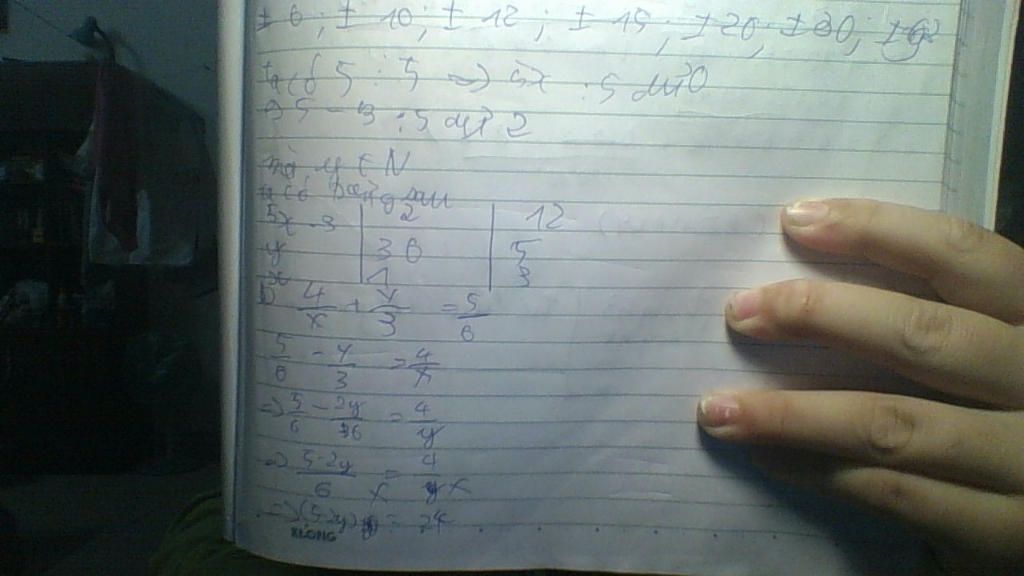 ± 6 ; ± 10 ; ± 12 ; ± 15 ; ± 20 ; ± 30 ; ± 60
5 : 5 => 5x : 5 dư 0
=> 5x - 3 : 5 dư 2
mà y ∈ N
ta có bảng sau
5x - 3 | 2 | 12
y | 30 | 5
x | 1 | 3
b) 4/x + y/3 = 5/6
5/6 - y/3 = 4/x
=> 5/6 - 2y/6 = 4/x
=> 5-2y/6 = 4/x
=> (5-2y) x = 24
KLONG